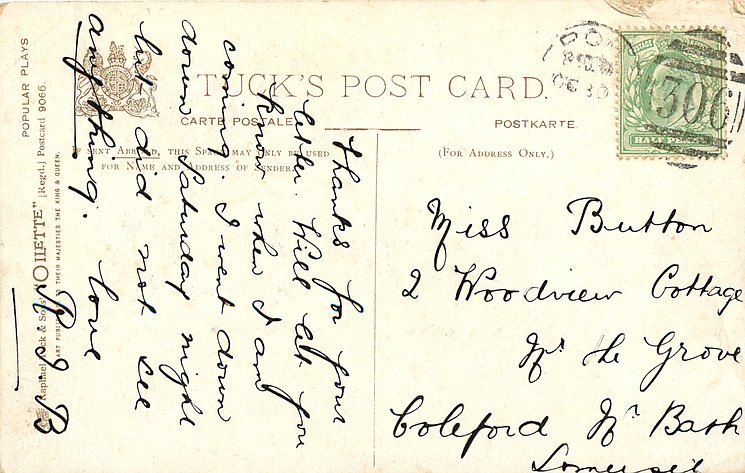 POPULAR PLAYS
Raphael Tuck & Sons' "OILETTE" [Regd.] Postcard 9066.
ART PUBLISHERS TO THEIR MAJESTIES THE KING & QUEEN.
TUCK'S POST CARD.
CARTE POSTALE
POSTKARTE.
IF SENT ABROAD, THIS SPACE MAY ONLY BE USED
FOR NAME AND ADDRESS OF SENDER.
(FOR ADDRESS ONLY.)
OC 30
306
HALFPENNY
Thanks for your
letter. Will let you
know when I am
coming. I went down
down Saturday night
but did not see
anything. love
B
Miss Button
2 Woodview Cottage
Nr the Grove
Coleford Nr Bath
Somerset